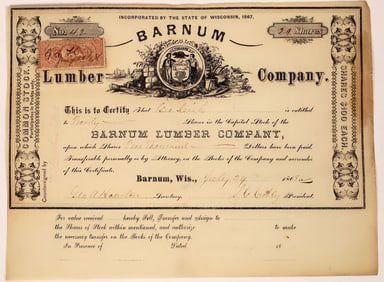 INCORPORATED BY THE STATE OF WISCONSIN, 1867.
No. 42
BARNUM
20 Shares
Lumber Company.
COMMON STOCK.
SHARES $100 EACH.
This is to Certify That Geo. is entitled
to Twenty Shares in the Capital Stock of the
BARNUM LUMBER COMPANY,
upon which Shares Dollars have been paid.
Transferable personally or by Attorney, on the Books of the Company and surrender
of this Certificate.
Countersigned by
Barnum, Wis., July 186
Geo. A. Secretary. President.
For value received hereby Sell, Transfer and Assign to
the Shares of Stock within mentioned, and authorize to make
the necessary transfer on the Books of the Company.
In Presence of Dated 18